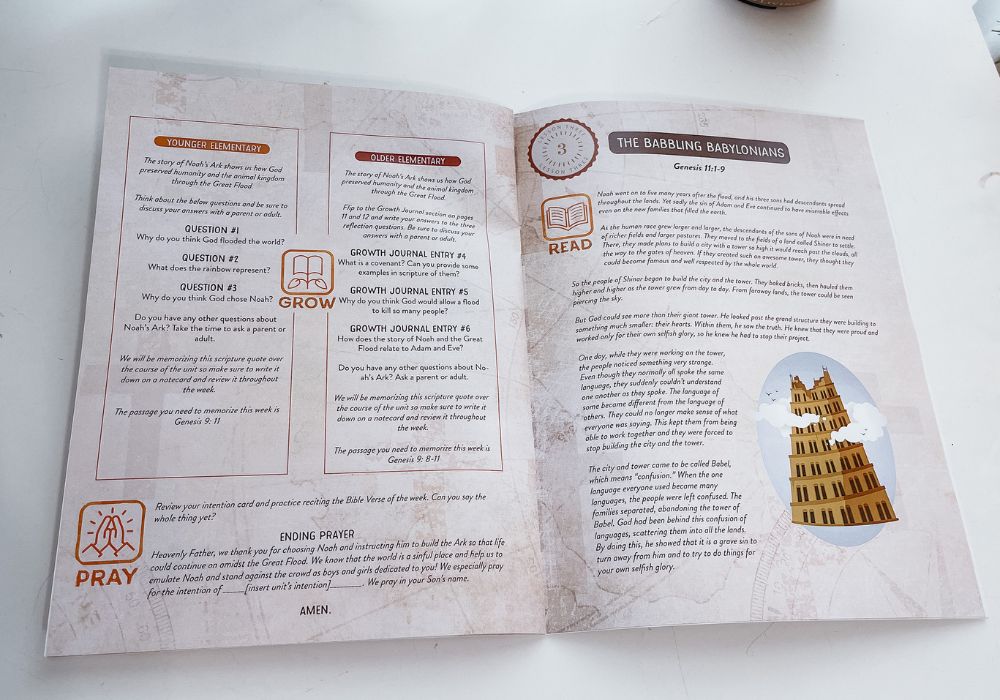 YOUNGER ELEMENTARY
The story of Noah's Ark shows us how God
preserved humanity and the animal kingdom
through the Great Flood.
Think about the below questions and be sure to
discuss your answers with a parent or adult.
QUESTION #1
Why do you think God flooded the world?
QUESTION #2
What does the rainbow represent?
QUESTION #3
Why do you think God chose Noah?
Do you have any other questions about
Noah's Ark? Take the time to ask a parent or
adult.
We will be memorizing this scripture quote over
the course of the unit so make sure to write it
down on a notecard and review it throughout
the week.
The passage you need to memorize this week is
Genesis 9: 11
GROW
OLDER ELEMENTARY
The story of Noah's Ark shows us how God
preserved humanity and the animal kingdom
through the Great Flood.
Flip to the Growth Journal section on pages
11 and 12 and write your answers to the three
reflection questions. Be sure to discuss your
answers with a parent or adult.
GROWTH JOURNAL ENTRY #4
What is a covenant? Can you provide some
examples in scripture of them?
GROWTH JOURNAL ENTRY #5
Why do you think God would allow a flood
to kill so many people?
GROWTH JOURNAL ENTRY #6
How does the story of Noah and the Great
Flood relate to Adam and Eve?
Do you have any other questions about No-
ah's Ark? Ask a parent or adult.
We will be memorizing this scripture quote over
the course of the unit so make sure to write it
down on a notecard and review it throughout
the week.
The passage you need to memorize this week is
Genesis 9: 8-11
PRAY
Review your intention card and practice reciting the Bible Verse of the week. Can you say the
whole thing yet?
ENDING PRAYER
Heavenly Father, we thank you for choosing Noah and instructing him to build the Ark so that life
could continue on amidst the Great Flood. We know that the world is a sinful place and help us to
emulate Noah and stand against the crowd as boys and girls dedicated to you! We especially pray
for the intention of ____[insert unit's intention]______. We pray in your Son's name.
AMEN.
LESSON THREE
3
LESSON THREE
THE BABBLING BABYLONIANS
Genesis 11:1-9
READ
Noah went on to live many years after the flood, and his three sons had descendants spread
throughout the lands. Yet sadly the sin of Adam and Eve continued to have miserable effects
even on the new families that filled the earth.
As the human race grew larger and larger, the descendants of the sons of Noah were in need
of richer fields and larger pastures. They moved to the fields of a land called Shinar to settle.
There, they made plans to build a city with a tower so high it would reach past the clouds, all
the way to the gates of heaven. If they created such an awesome tower, they thought they
could become famous and well respected by the whole world.
So the people of Shinar began to build the city and the tower. They baked bricks, then hauled them
higher and higher as the tower grew from day to day. From faraway lands, the tower could be seen
piercing the sky.
But God could see more than their giant tower. He looked past the grand structure they were building to
something much smaller: their hearts. Within them, he saw the truth. He knew that they were proud and
worked only for their own selfish glory, so he knew he had to stop their project.
One day, while they were working on the tower,
the people noticed something very strange.
Even though they normally all spoke the same
language, they suddenly couldn't understand
one another as they spoke. The language of
some became different from the language of
others. They could no longer make sense of what
everyone was saying. This kept them from being
able to work together and they were forced to
stop building the city and the tower.
The city and tower came to be called Babel,
which means "confusion." When the one
language everyone used became many
languages, the people were left confused. The
families separated, abandoning the tower of
Babel. God had been behind this confusion of
languages, scattering them into all the lands.
By doing this, he showed that it is a grave sin to
turn away from him and to try to do things for
your own selfish glory.